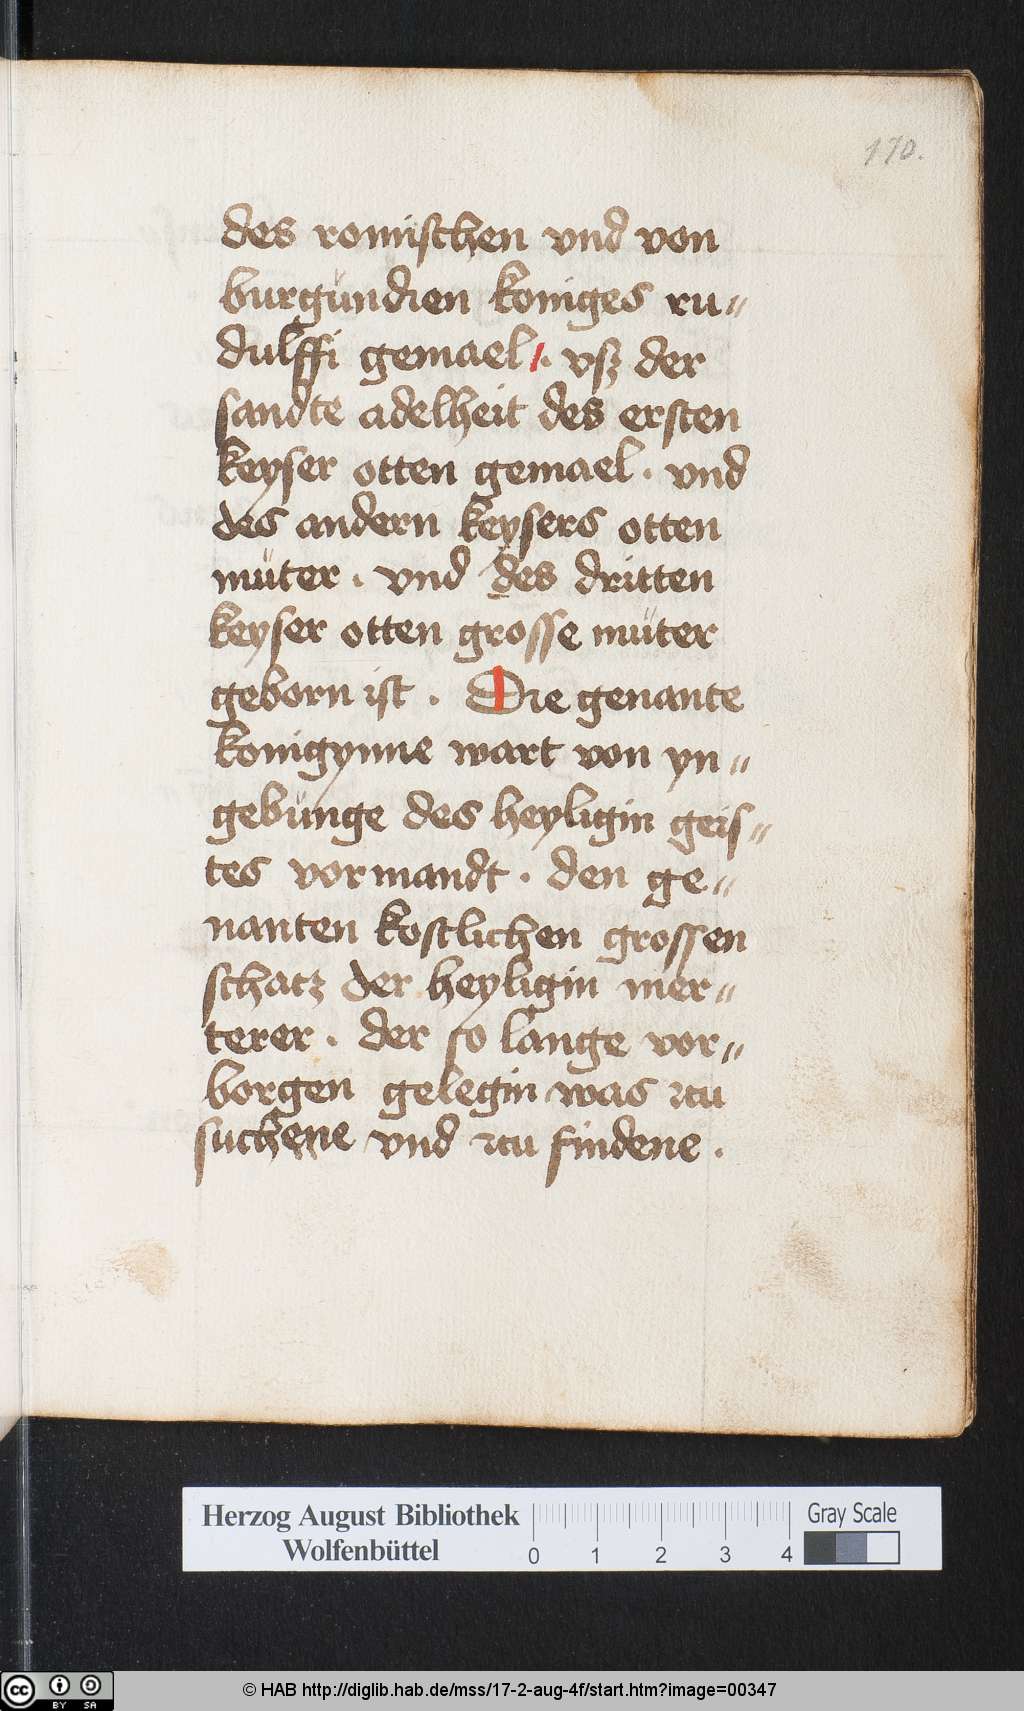 170.
des romischen vnd von
burgūndien koniges ru〃
dulffi gemael. vsz der
sandte adelheit des ersten
keyser otten gemael. vnd
des andern keysers otten
müter. vnd des dritten
keyser otten grosse müter
geborn ist. Die genante
konigynne wart von yn〃
gebünge des heyligin geis〃
tes vormandt. den ge〃
nanten kostlichen grossen
schatz der heyligin mer〃
terer. der so lange vor〃
borgen gelegin was zcu
suchene vnd zcu findene.
Herzog August Bibliothek
Wolfenbüttel
0 1 2 3 4
Gray Scale
cc BY SA
© HAB http://diglib.hab.de/mss/17-2-aug-4f/start.htm?image=00347